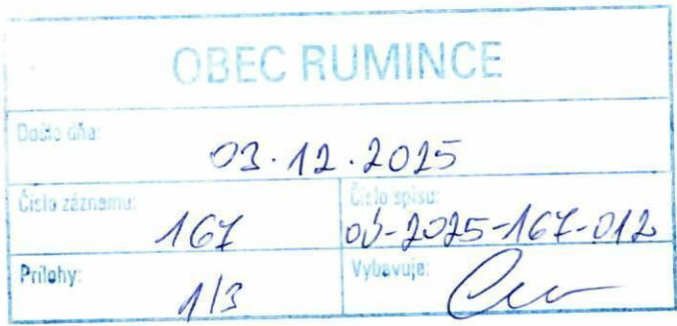 OBEC RUMINCE
Došlo dňa:
03.12.2025
Číslo záznamu:
167
Číslo spisu:
OÚ-2025-167-012
Prílohy:
1/3
Vybavuje: